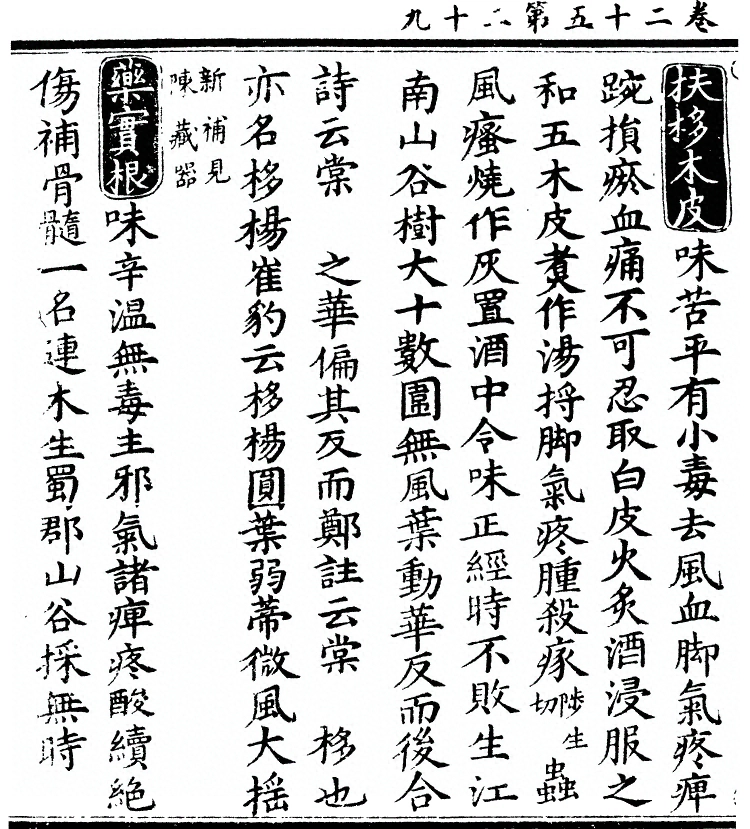 卷二十五第二十九
扶栘木皮味苦平有小毒去風血脚氣疼痺
踠損瘀血痛不可忍取白皮火炙酒浸服之
和五木皮煮作湯捋脚氣疼腫殺瘃陟生切蟲
風瘙燒作灰置酒中令味正經時不敗生江
南山谷樹大十數圍無風葉動華反而後合
詩云棠 之華偏其反而鄭註云棠 栘也
亦名栘楊崔豹云栘楊圓葉弱蒂微風大揺
新補見陳藏器
藥實根味辛温無毒主邪氣諸痺疼酸續絶
傷補骨髓一名連木生蜀郡山谷採無時